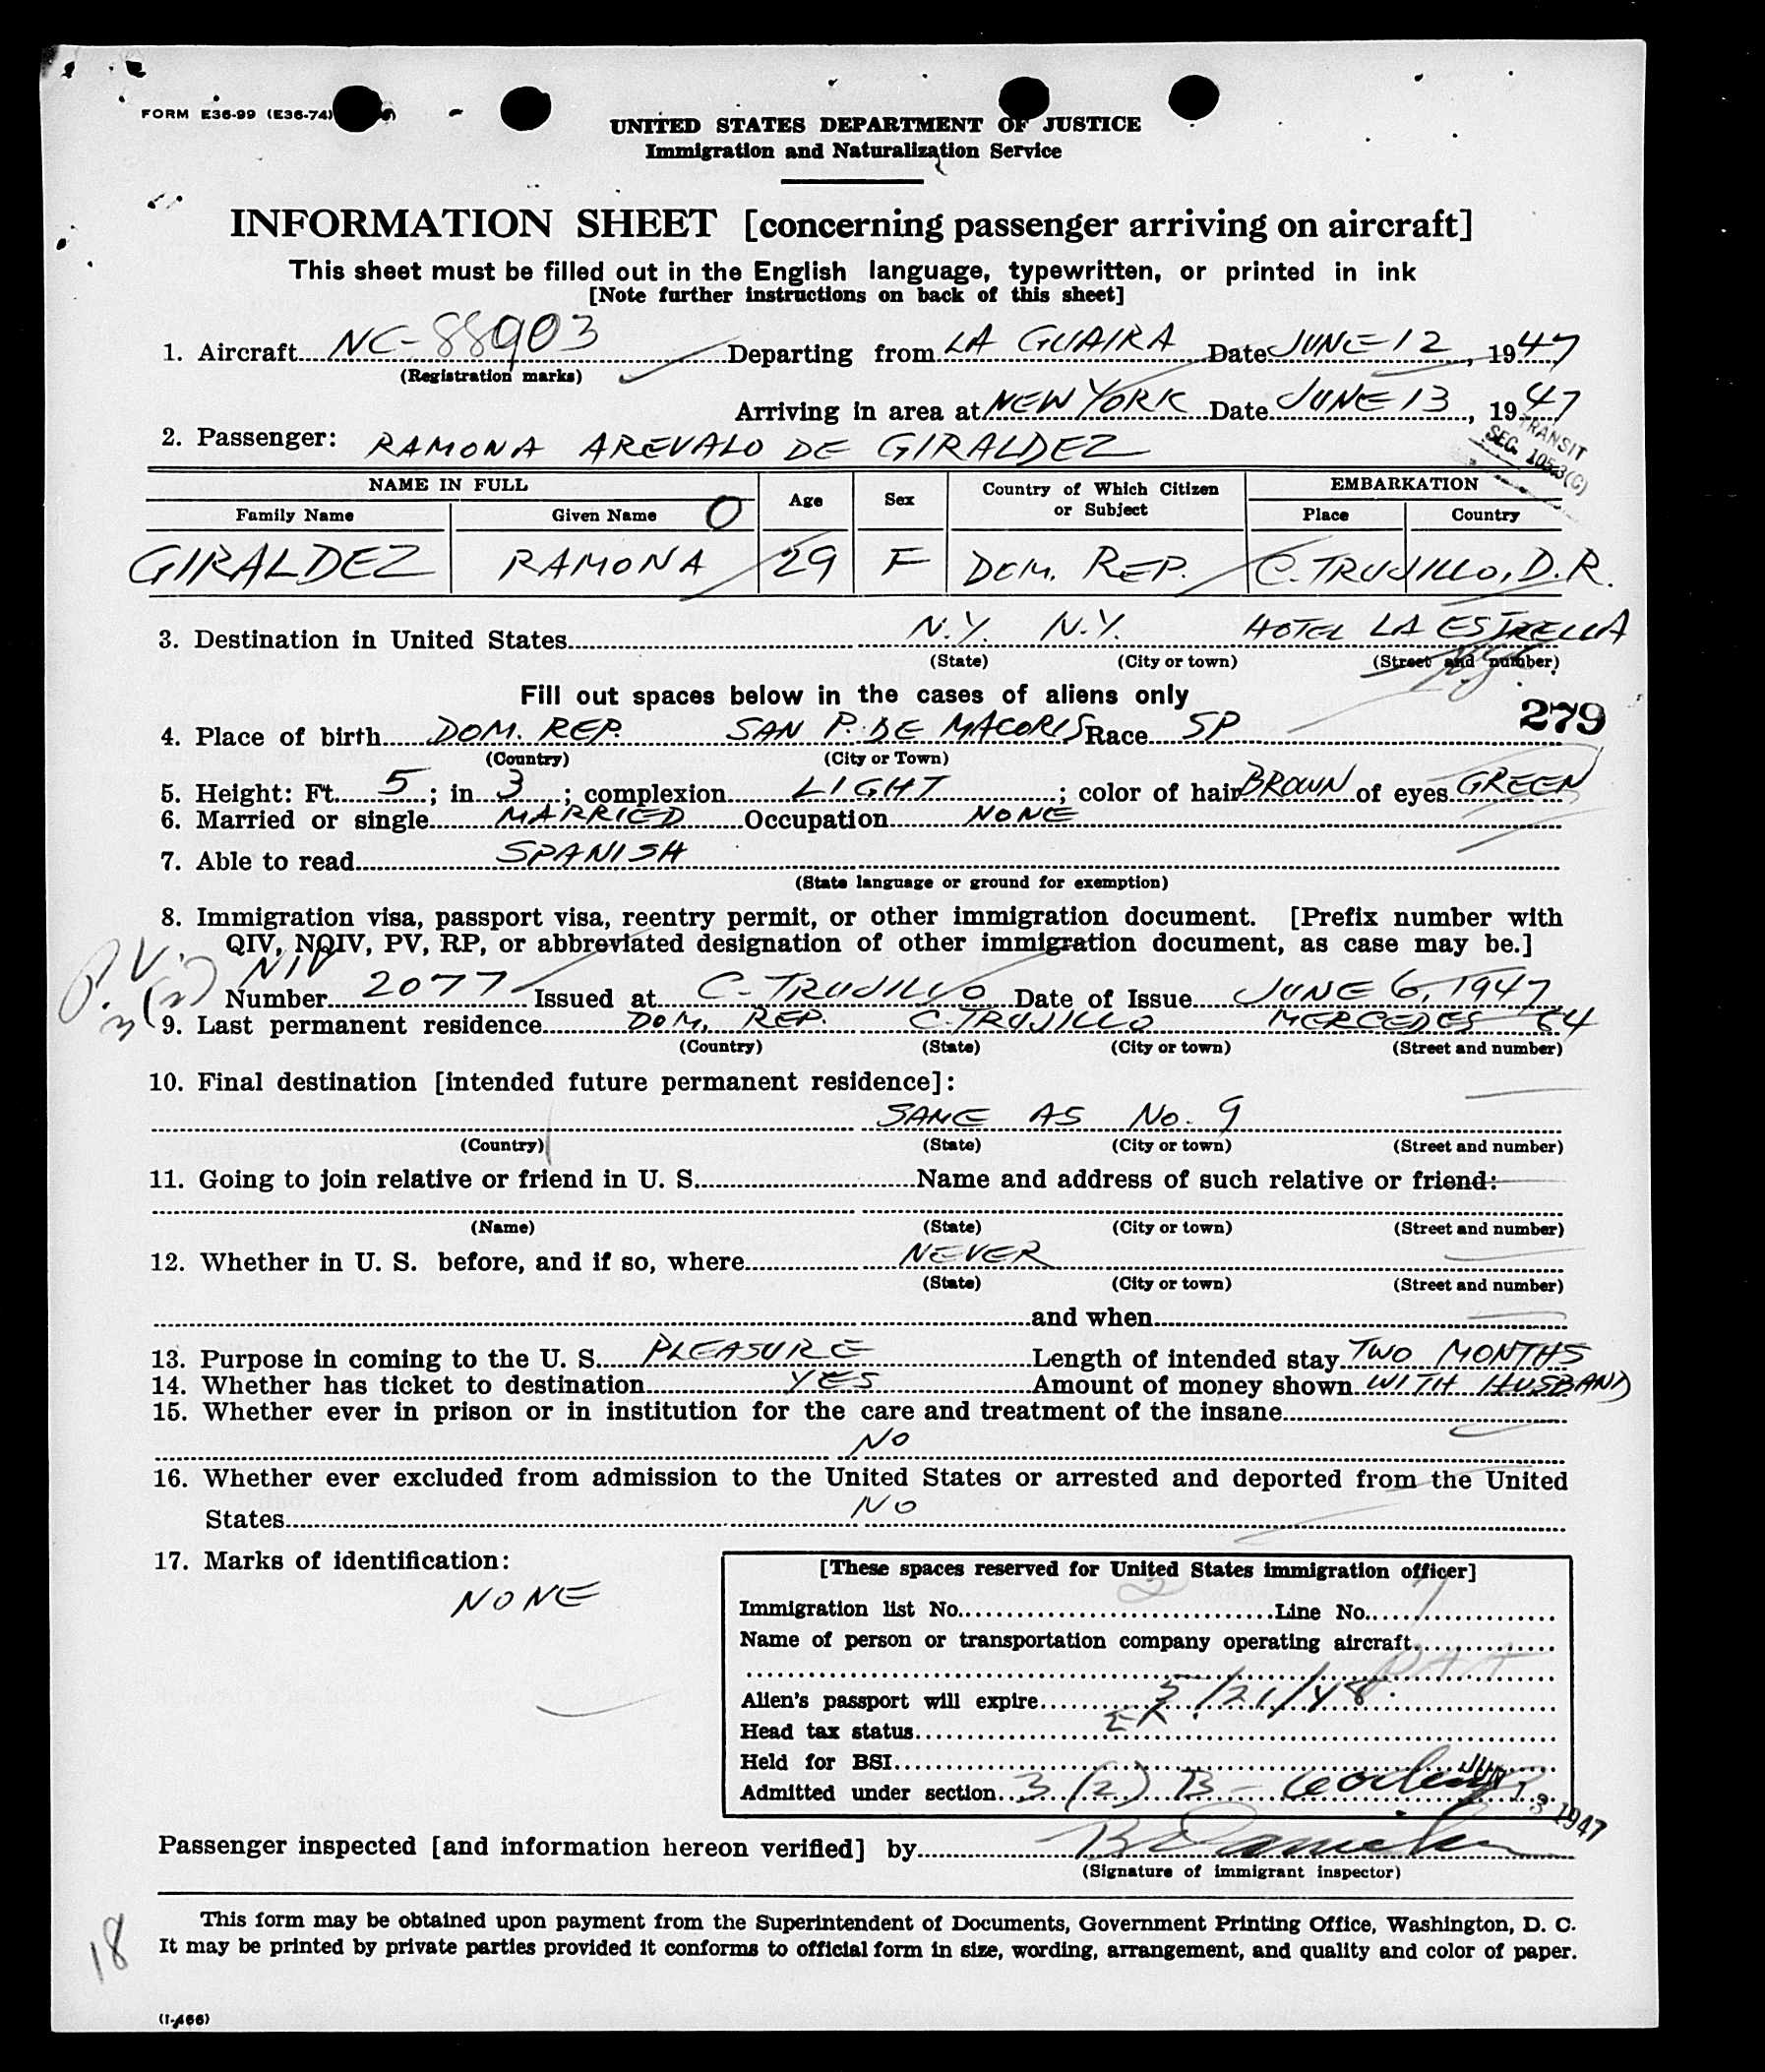 FORM E36-99 (E36-74)
UNITED STATES DEPARTMENT OF JUSTICE
Immigration and Naturalization Service
INFORMATION SHEET [concerning passenger arriving on aircraft]
This sheet must be filled out in the English language, typewritten, or printed in ink
[Note further instructions on back of this sheet]
1. Aircraft NC-88903 Departing from LA GUAIRA Date JUNE 12, 1947
(Registration marks)
Arriving in area at NEW YORK Date JUNE 13, 1947
2. Passenger: RAMONA AREVALO DE GIRALDEZ
TRANSIT
SEC. 1053(G)
NAME IN FULL Age Sex Country of Which Citizen or Subject EMBARKATION
Family Name Given Name O Place Country
GIRALDEZ RAMONA 29 F DOM. REP. C. TRUJILLO, D.R.
3. Destination in United States N.Y. N.Y. HOTEL LA ESTRELLA
(State) (City or town) (Street and number)
N.Y.
Fill out spaces below in the cases of aliens only
279
4. Place of birth DOM. REP. SAN P. DE MACORIS Race SP
(Country) (City or Town)
5. Height: Ft. 5; in 3; complexion LIGHT; color of hair BROWN of eyes GREEN
6. Married or single MARRIED Occupation NONE
7. Able to read SPANISH
(State language or ground for exemption)
8. Immigration visa, passport visa, reentry permit, or other immigration document. [Prefix number with
QIV, NQIV, PV, RP, or abbreviated designation of other immigration document, as case may be.]
P.V. 3(2) NIV
Number 2077 Issued at C. TRUJILLO Date of Issue JUNE 6, 1947
9. Last permanent residence DOM. REP. C. TRUJILLO MERCEDES 64
(Country) (State) (City or town) (Street and number)
10. Final destination [intended future permanent residence]:
SAME AS No. 9
(Country) (State) (City or town) (Street and number)
11. Going to join relative or friend in U. S. Name and address of such relative or friend:
(Name) (State) (City or town) (Street and number)
12. Whether in U. S. before, and if so, where NEVER
(State) (City or town) (Street and number)
and when
13. Purpose in coming to the U. S. PLEASURE Length of intended stay TWO MONTHS
14. Whether has ticket to destination YES Amount of money shown WITH HUSBAND
15. Whether ever in prison or in institution for the care and treatment of the insane
NO
16. Whether ever excluded from admission to the United States or arrested and deported from the United
States NO
17. Marks of identification:
NONE
[These spaces reserved for United States immigration officer]
Immigration list No. 2 Line No. 7
Name of person or transportation company operating aircraft
PAA
Alien's passport will expire 5/21/48.
Head tax status EX.
Held for BSI
Admitted under section 3 (2) B -
JUN 13 1947
Passenger inspected [and information hereon verified] by
(Signature of immigrant inspector)
This form may be obtained upon payment from the Superintendent of Documents, Government Printing Office, Washington, D. C.
It may be printed by private parties provided it conforms to official form in size, wording, arrangement, and quality and color of paper.
18
(I-466)